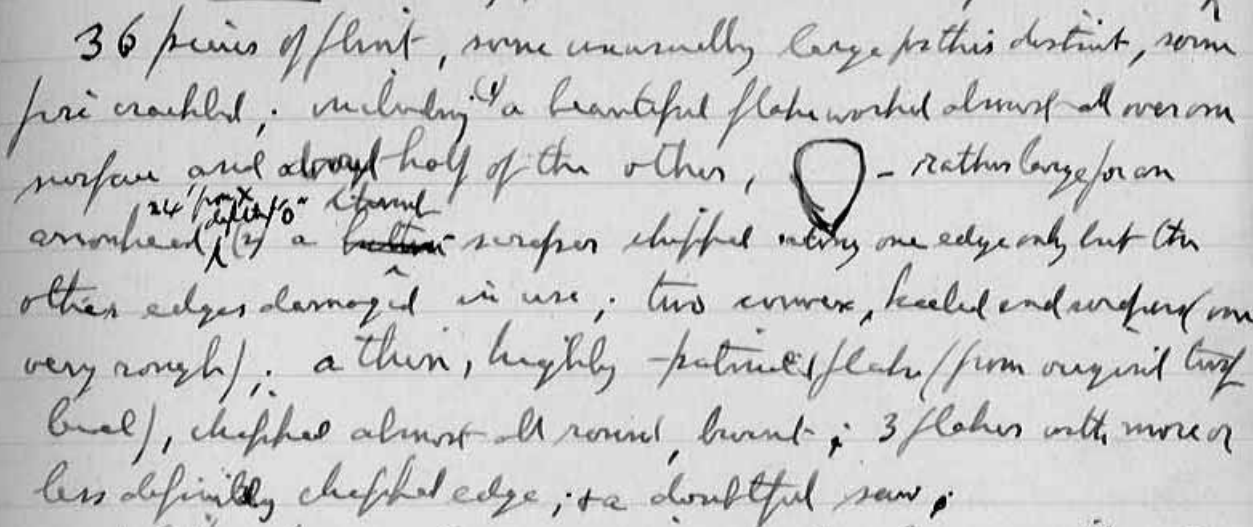 36 pieces of flint, some unusually large for this district, some
fire crackled; including (1) a beautiful flake worked almost all over one
surface and about half of the other, - rather large for an
24" from
arrowhead, (2) a scraper chipped along one edge only but the
other edges damaged in use; two convex, keeled end scrapers (one
very rough); a thin, highly-patined flake (from original turf
level), chipped almost all round, burnt; 3 flakes with more or
less definitely chipped edge; & a doubtful saw;